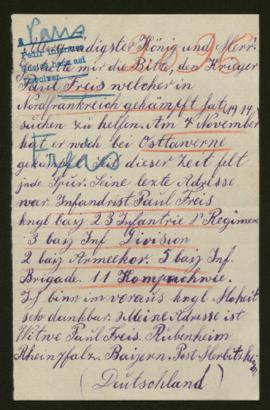 König und Herr
mir die Bitte, den Krieger
Paul Freis welcher in
Nordfrankreich gekämpft hat 1914
suchen zu helfen. Am 4 November
hat er noch bei
Frejs
seit dieser Zeit fehlt
jede Spur. Seine lezte Adresse
war Infandrist Paul Freis
kngl baÿ 23 Infantrie Regimen
3 baÿ Inf Division
2 baÿ Armeekor. 5 baÿ Inf.
Brigade. 11
Ich bin im voraus kngl Hoheit
sehr dankbar. Meine Adresse ist
Witwe Paul Freis. Rubenheim
Rheinpfalz. Baÿern. Post Herbitzheim
(Deutschland)